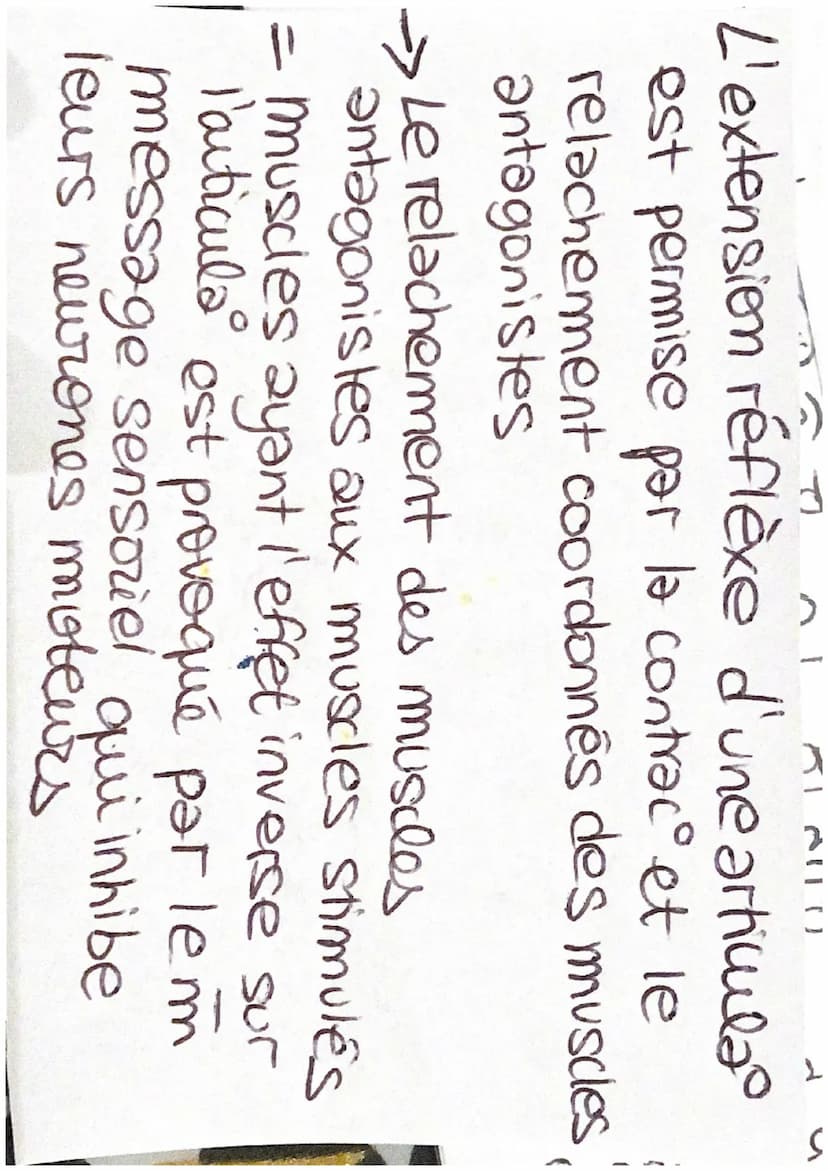 L'extension réfléxe d'une articulaº
est permise par la contracº et le
relachement coordonnés des muscles
antagonistes
→ Le relachement des muscles
antagonistes aux muscles stimulés
= muscles ayant l'effet inverse sur
l'articulaº est provoqué par le m̄
message sensoriel qui inhibe
leurs neurones moteurs